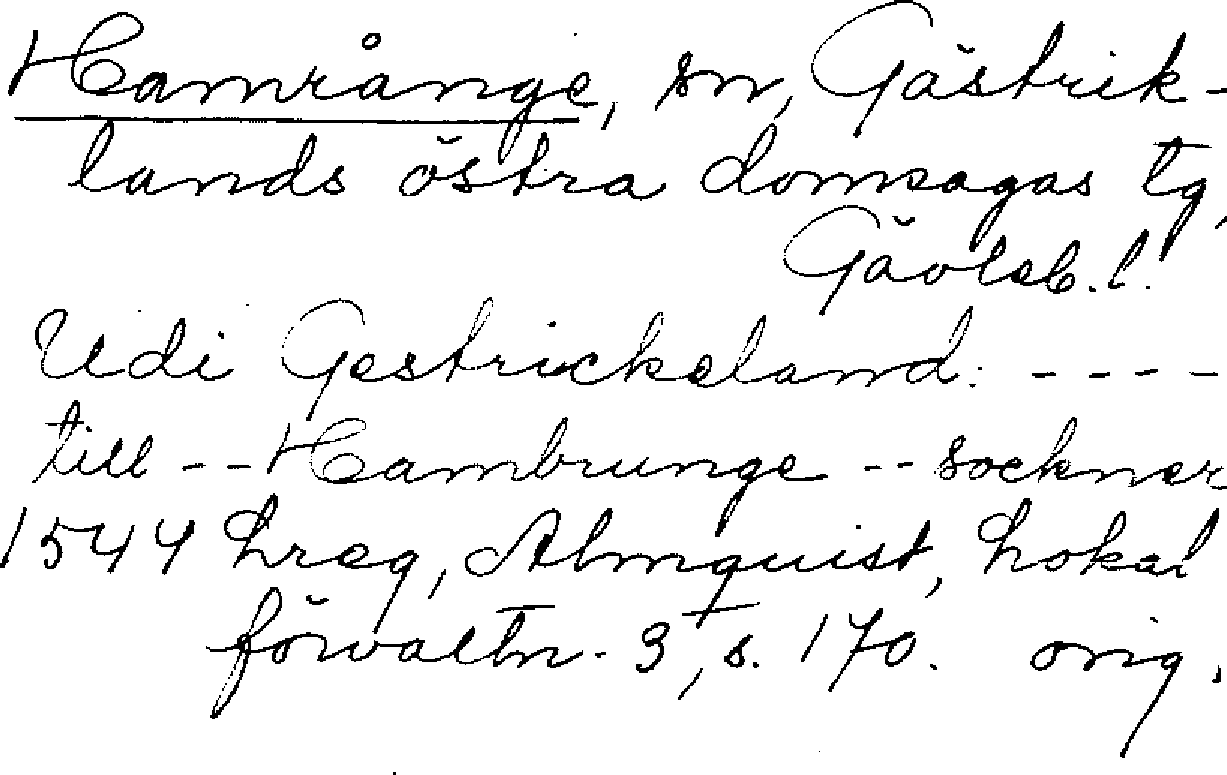 Hamrånge, sn, Gästrik-
lands östra domsagas tg,
Gävleb. l.
Udi Gestrickeland: ----
till -- Hambrunge -- sockner
1544 Lreg, Almquist, Lokal
förvaltn. 3, s. 170. orig.